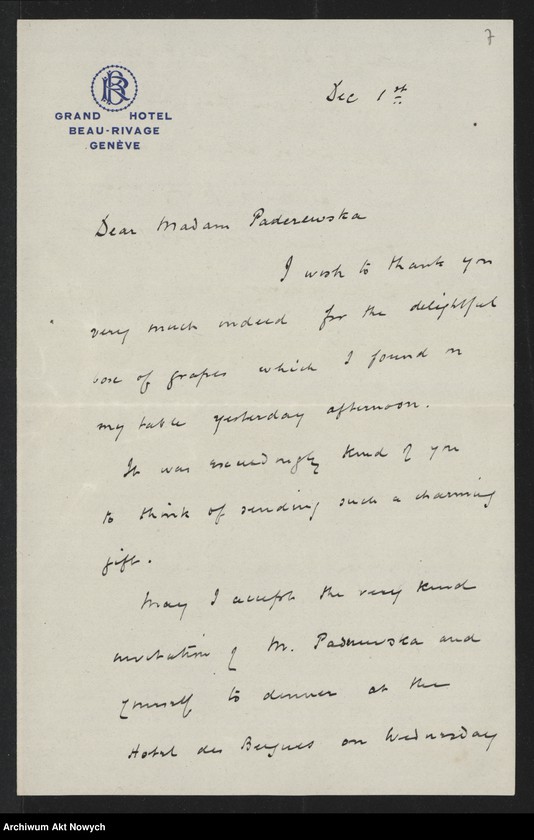 7
BR
GRAND HOTEL
BEAU-RIVAGE
GENÈVE
Dec 1st
Dear Madam Paderewska
I wish to thank you
very much indeed for the delightful
box of grapes which I found on
my table yesterday afternoon.
It was exceedingly kind of you
to think of sending such a charming
gift.
May I accept the very kind
invitation of M. Paderewska and
yourself to dinner at the
Hotel des Bergues on Wednesday
Archiwum Akt Nowych